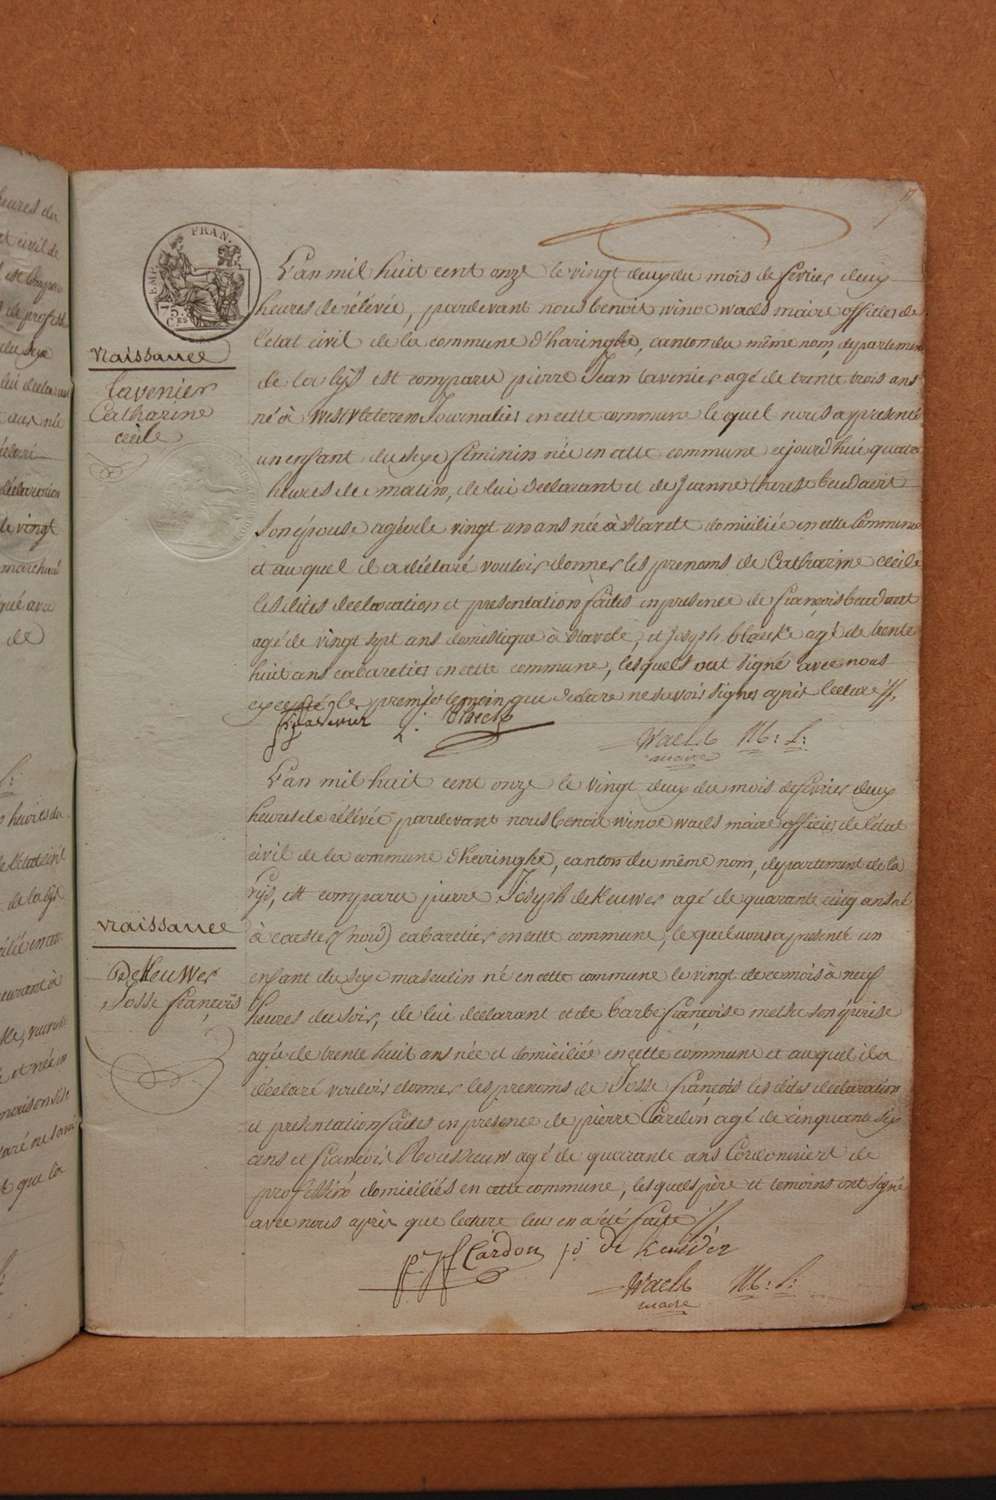 EMP. FRAN.
75.
Ces
naissance
lavenier
Catharine
cecile
L'an mil huit cent onze le vingt deux du mois de fevrier deux
heures de rélévée, pardevant nous benoit winoc waels maire officier de
l'etat civil de la commune d'haringhe, canton du même nom, departement
de la lijs est comparu pierre Jean lavenier agé de trente trois ans
né à westvleteren Journalier en cette commune le quel nous a presenté
un enfant du sexe feminin née en cette commune cejourd'hui quatre
heures de matin, de lui declarant et de Jeanne therese beudaert
son épouse agée de vingt un ans née à Stavele domiciliée en cette Commune
et au quel il a déclaré vouloir donner les prenoms de Catharine cecile
les dites declaration et presentation faites en presence de françois beudaert
agé de vingt sept ans domestique à Stavele, et Joseph blanckе agé de trente
huit ans cabaretier en cette commune, lesquels ont signé avec nous
excepté le premier temoin que declare ne savoir signer après lecture
Waels M: f:
maire
L'an mil huit cent onze le vingt deux du mois de fevrier deux
heures de rélévée pardevant nous benoit winoc waels maire officier de l'etat
civil de la commune d'haringhe, canton du même nom, departement de la
lijs, est comparu pierre Joseph de Keuwer agé de quarante cinq ans né
à caester (nord) cabaretier en cette commune, le quel nous a presenté un
enfant du sexe masculin né en cette commune le vingt de ce mois à neuf
heures du soir, de lui declarant et de barbe françoise metske son épouse
agée de trente huit ans née et domiciliée en cette commune et au quel il a
déclaré vouloir donner les prenoms de Josse françois les dites declaration
et presentation faites en presence de pierre Cardon agé de cinquante six
ans et françois Rousseeuw agé de quarante ans Cordonniers de
profession domiciliés en cette commune, lesquels père et temoins ont signé
avec nous après que lecture leur en a été faite
naissance
De Keuwer
Josse françois
Cardon p j de keuwer
Waels M: f:
maire